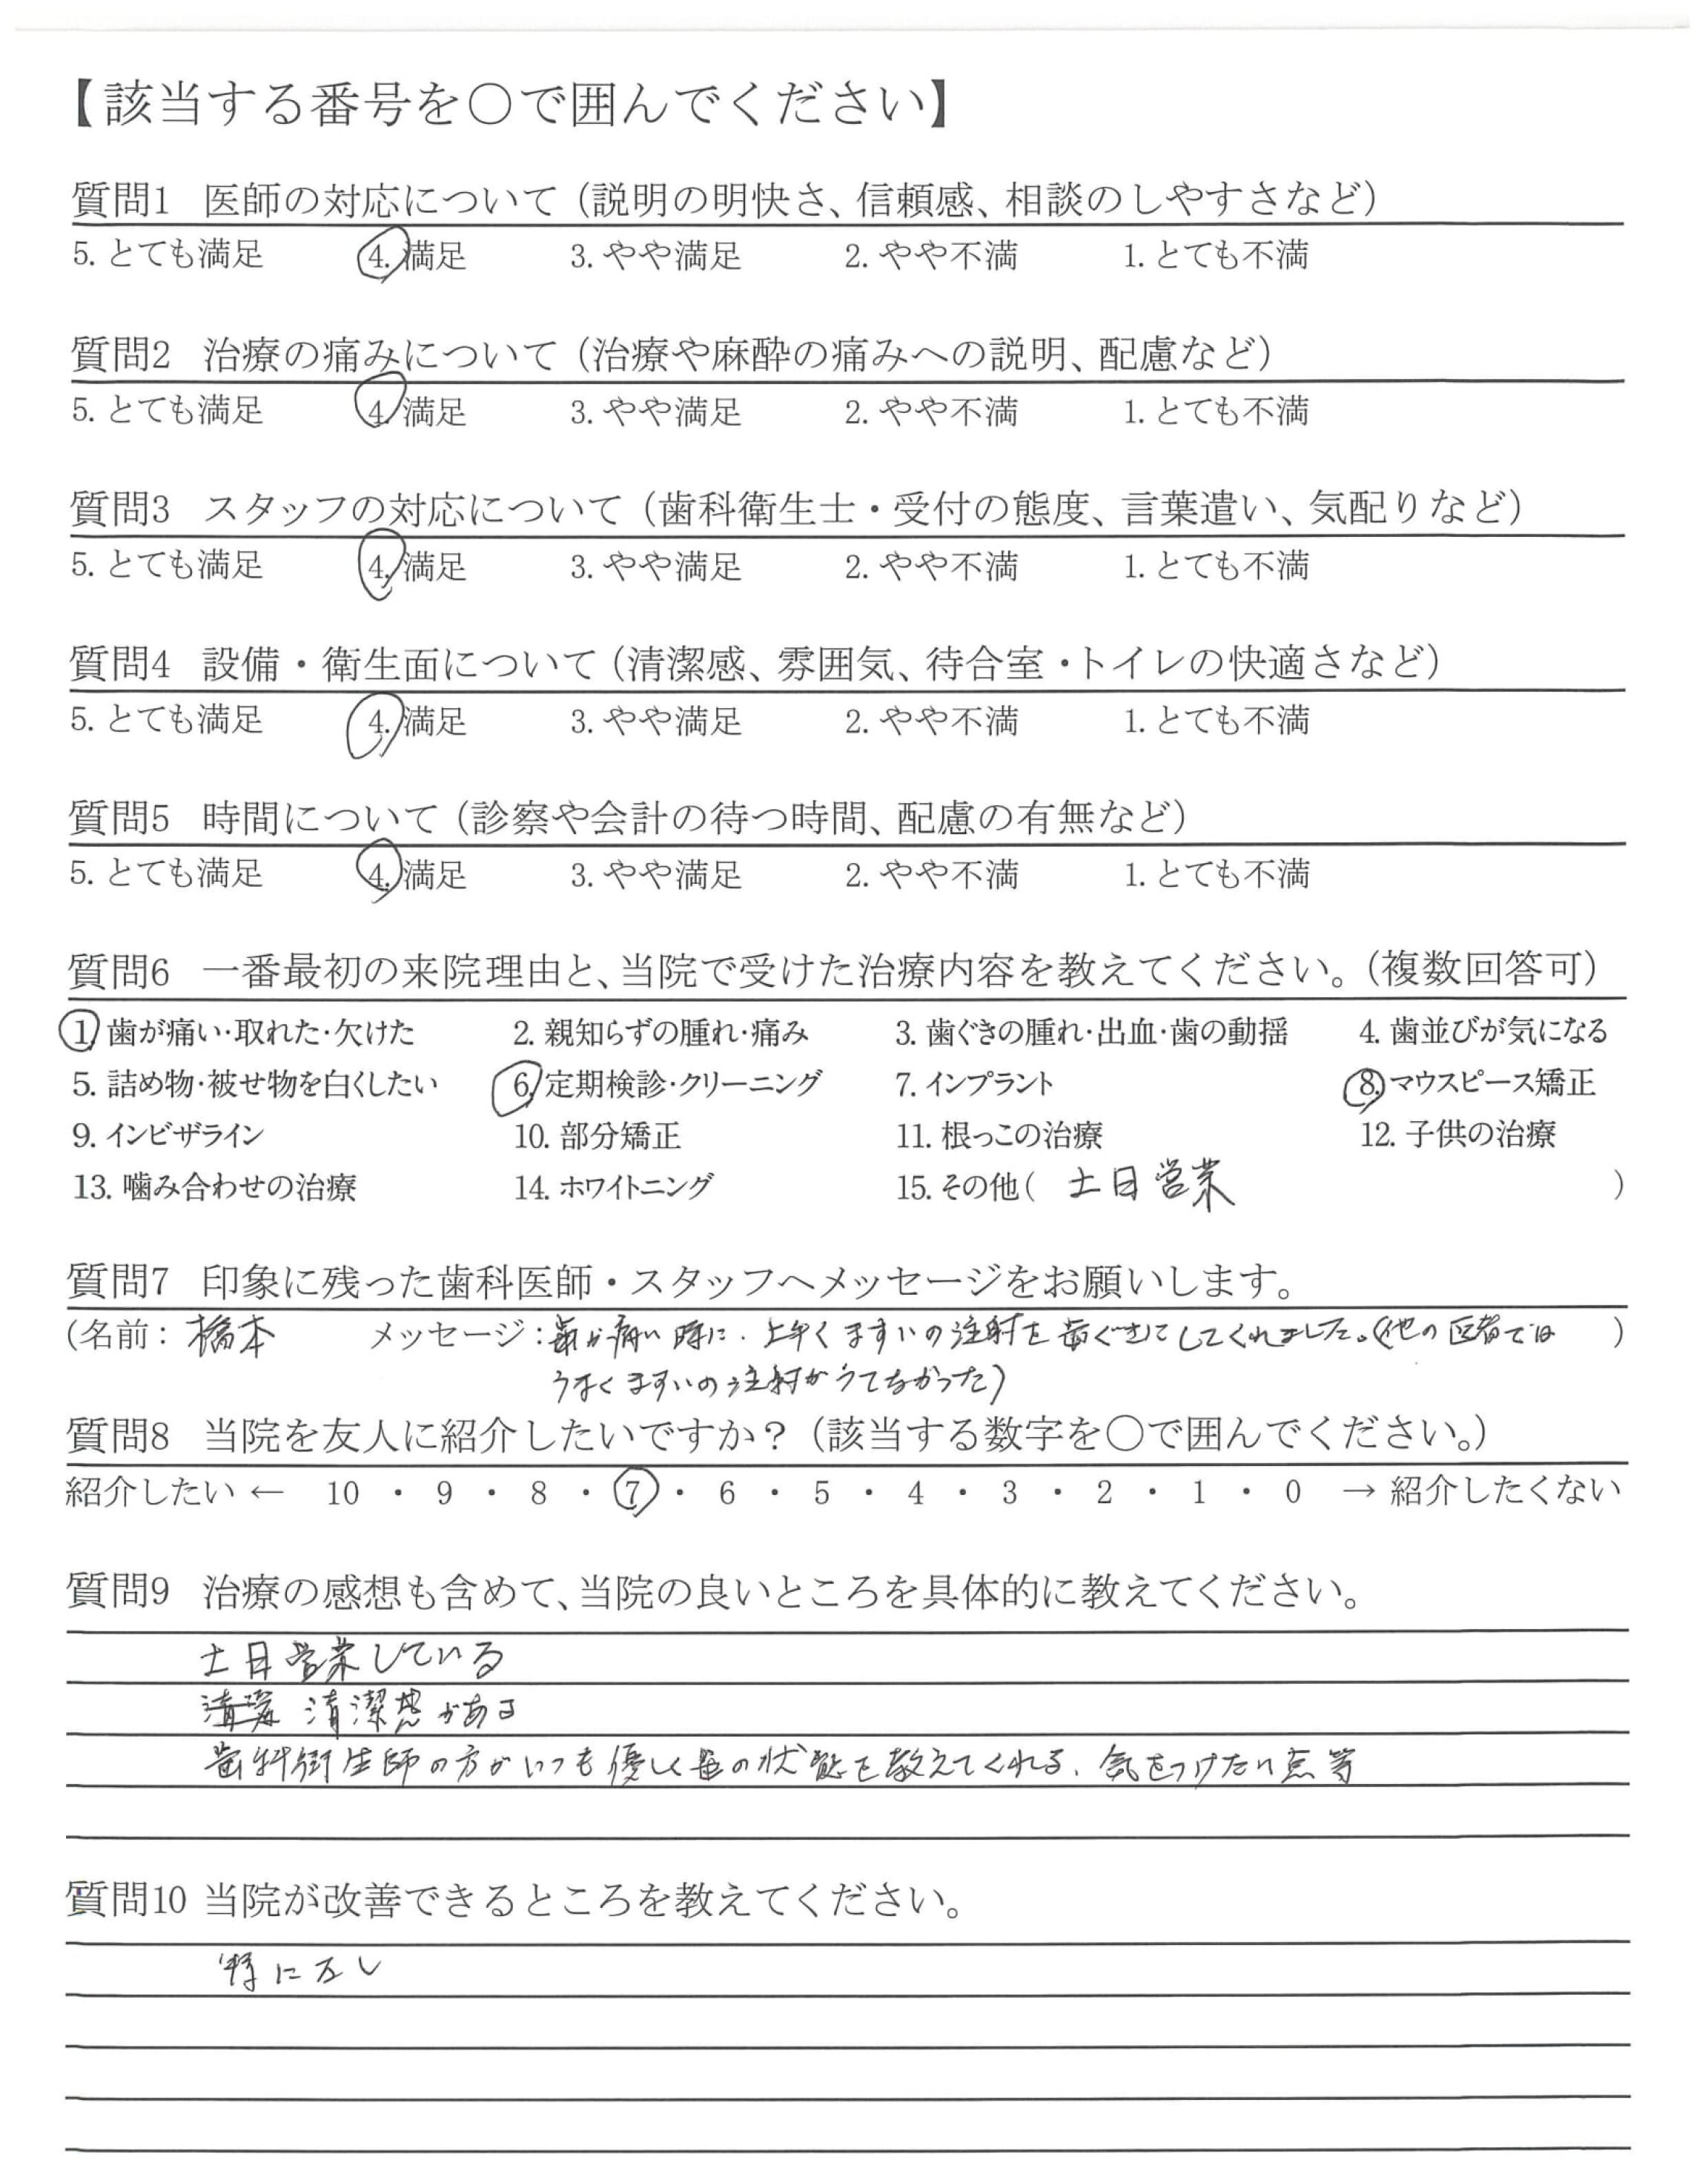 【該当する番号を○で囲んでください】
質問1 医師の対応について（説明の明快さ、信頼感、相談のしやすさなど）
5. とても満足 4. 満足 3. やや満足 2. やや不満 1. とても不満
質問2 治療の痛みについて（治療や麻酔の痛みへの説明、配慮など）
5. とても満足 4. 満足 3. やや満足 2. やや不満 1. とても不満
質問3 スタッフの対応について（歯科衛生士・受付の態度、言葉遣い、気配りなど）
5. とても満足 4. 満足 3. やや満足 2. やや不満 1. とても不満
質問4 設備・衛生面について（清潔感、雰囲気、待合室・トイレの快適さなど）
5. とても満足 4. 満足 3. やや満足 2. やや不満 1. とても不満
質問5 時間について（診察や会計の待つ時間、配慮の有無など）
5. とても満足 4. 満足 3. やや満足 2. やや不満 1. とても不満
質問6 一番最初の来院理由と、当院で受けた治療内容を教えてください。（複数回答可）
1. 歯が痛い・取れた・欠けた 2. 親知らずの腫れ・痛み 3. 歯ぐきの腫れ・出血・歯の動揺 4. 歯並びが気になる
5. 詰め物・被せ物を白くしたい 6. 定期検診・クリーニング 7. インプラント 8. マウスピース矯正
9. インビザライン 10. 部分矯正 11. 根っこの治療 12. 子供の治療
13. 噛み合わせの治療 14. ホワイトニング 15. その他（ 土日営業 ）
質問7 印象に残った歯科医師・スタッフへメッセージをお願いします。
（名前： 橋本 メッセージ：歯が痛い時に、上手くますいの注射を歯ぐきにしてくれました。（他の医者では ）
うまくますいの注射がうてなかった）
質問8 当院を友人に紹介したいですか？（該当する数字を○で囲んでください。）
紹介したい ← 10 ・ 9 ・ 8 ・ 7 ・ 6 ・ 5 ・ 4 ・ 3 ・ 2 ・ 1 ・ 0 → 紹介したくない
質問9 治療の感想も含めて、当院の良いところを具体的に教えてください。
土日営業している
清潔感がある
歯科衛生師の方がいつも優しく歯の状態を教えてくれる、気をつけたい点等
質問10 当院が改善できるところを教えてください。
特になし